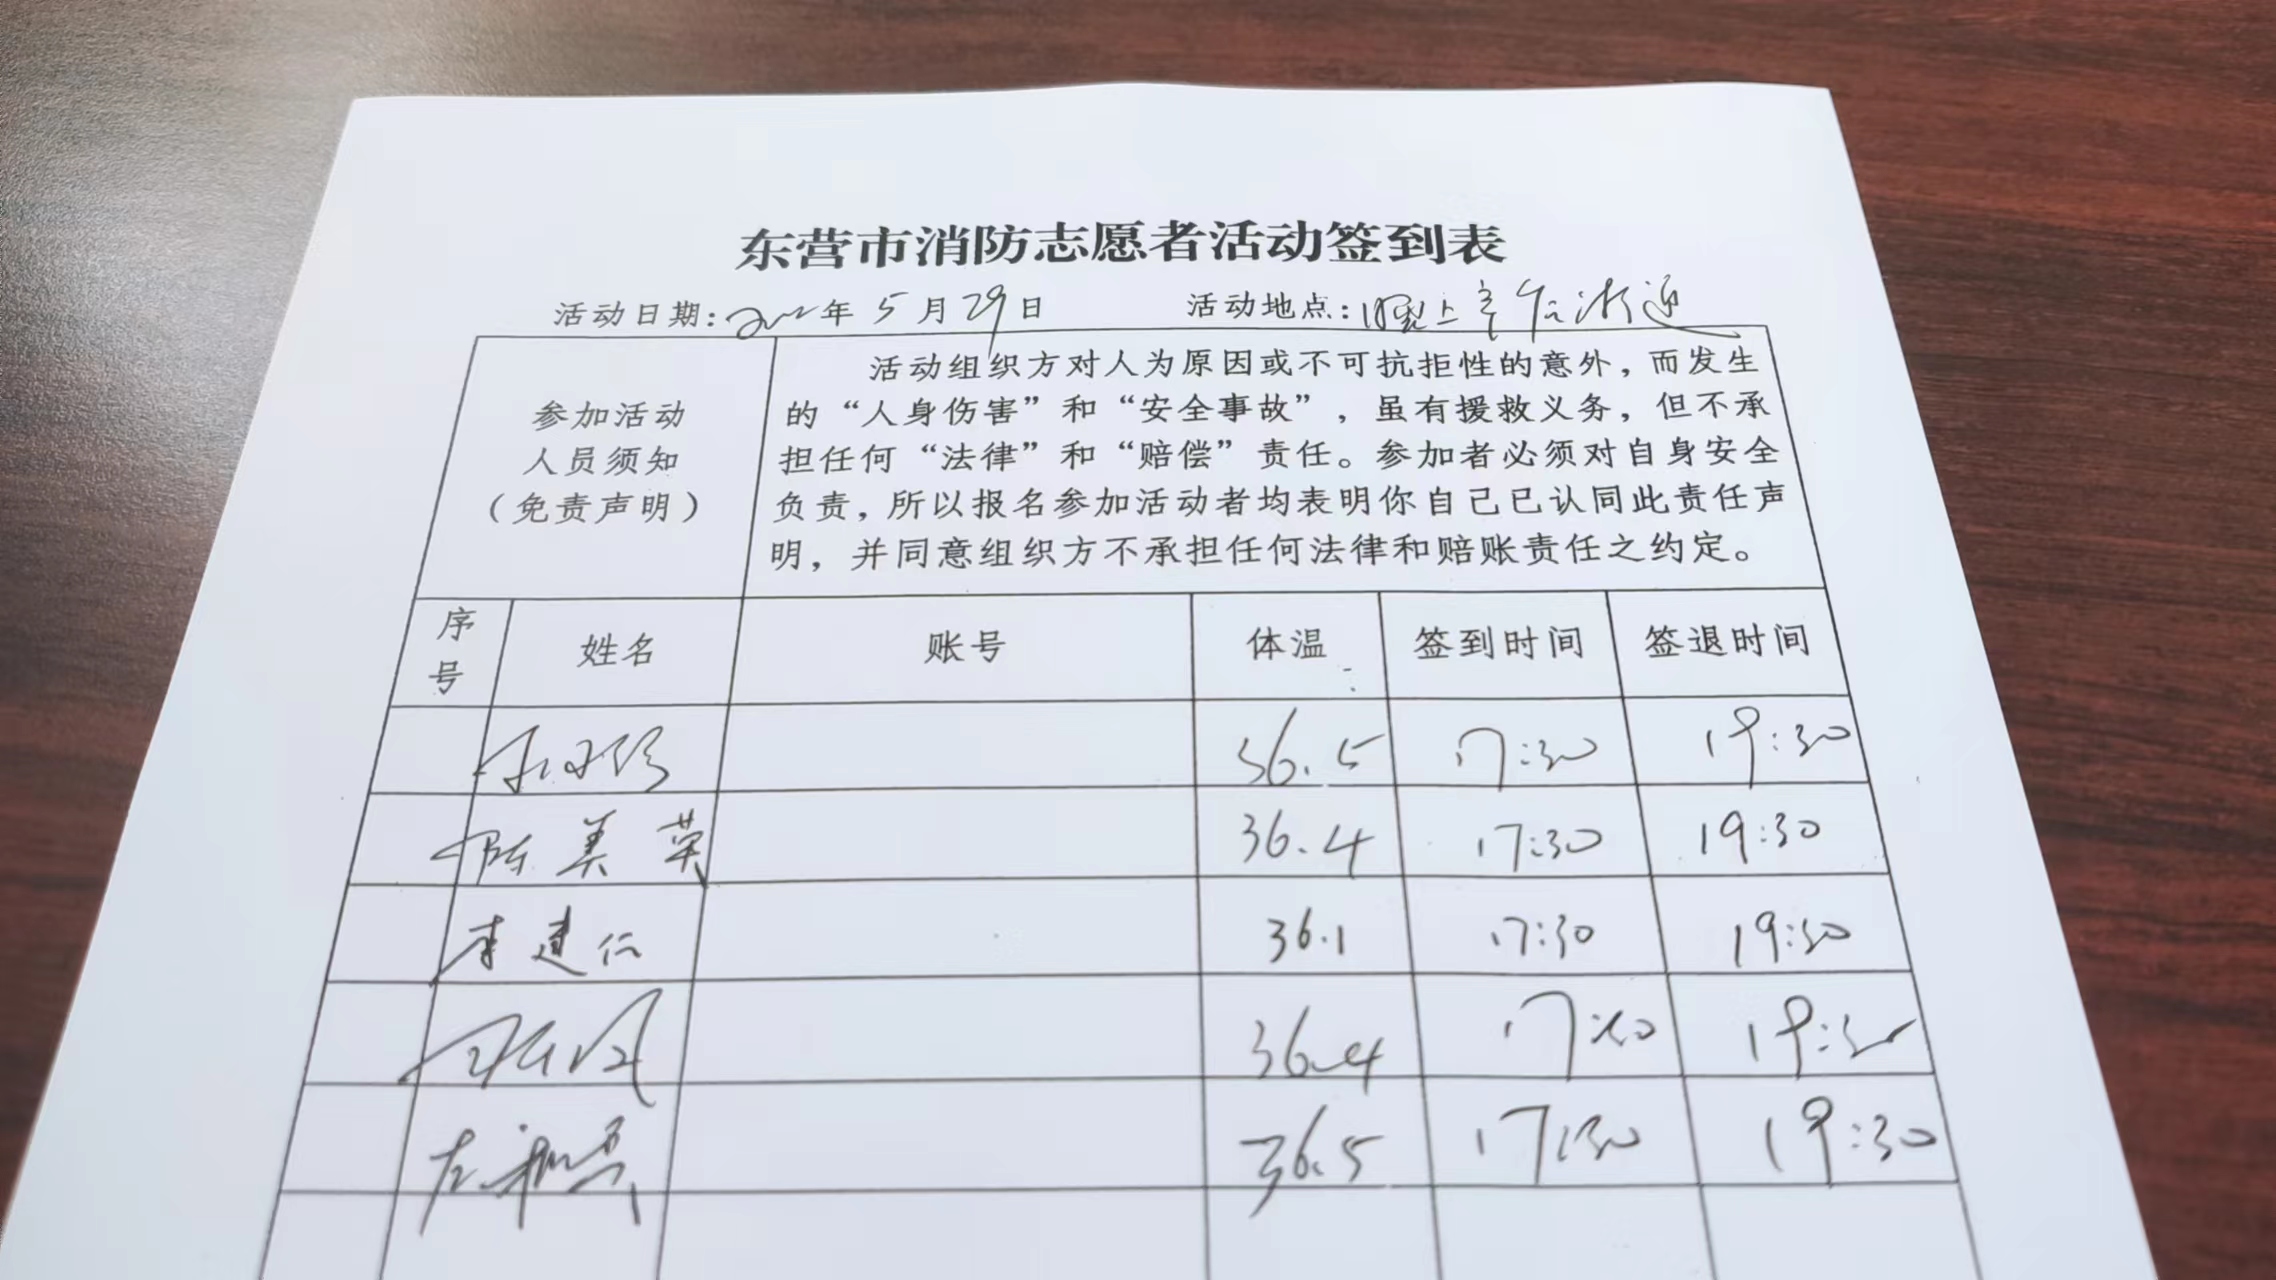 东营市消防志愿者活动签到表
活动日期:2022年5月29日 活动地点:
参加活动
人员须知
(免责声明)
活动组织方对人为原因或不可抗拒性的意外,而发生
的“人身伤害”和“安全事故”,虽有援救义务,但不承
担任何“法律”和“赔偿”责任。参加者必须对自身安全
负责,所以报名参加活动者均表明你自己已认同此责任声
明,并同意组织方不承担任何法律和赔账责任之约定。
序号 姓名 账号 体温 签到时间 签退时间
36.5 17:30 19:30
陈美荣 36.4 17:30 19:30
李建仁 36.1 17:30 19:30
36.4 17:30 19:30
36.5 17:30 19:30